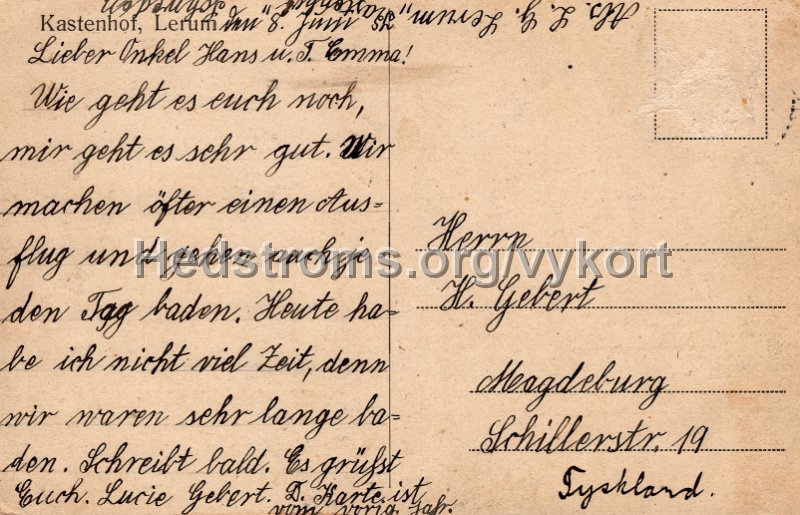 Kastenhof, Lerum den 8. Juni
Lieber Onkel Hans u. T. Emma!
Wie geht es euch noch,
mir geht es sehr gut. Wir
machen öfter einen Aus=
flug und gehen auch je
den Tag baden. Heute ha=
be ich nicht viel Zeit, denn
wir waren sehr lange ba=
den. Schreibt bald. Es grüßt
Euch. Lucie Gebert. D. Karte ist
vom vorig. Jahr.
Abs. L. G. Lerum,
Schweden
Herrn
H. Gebert
Magdeburg
Schillerstr. 19
Tyskland.
Hedstroms.org/vykort